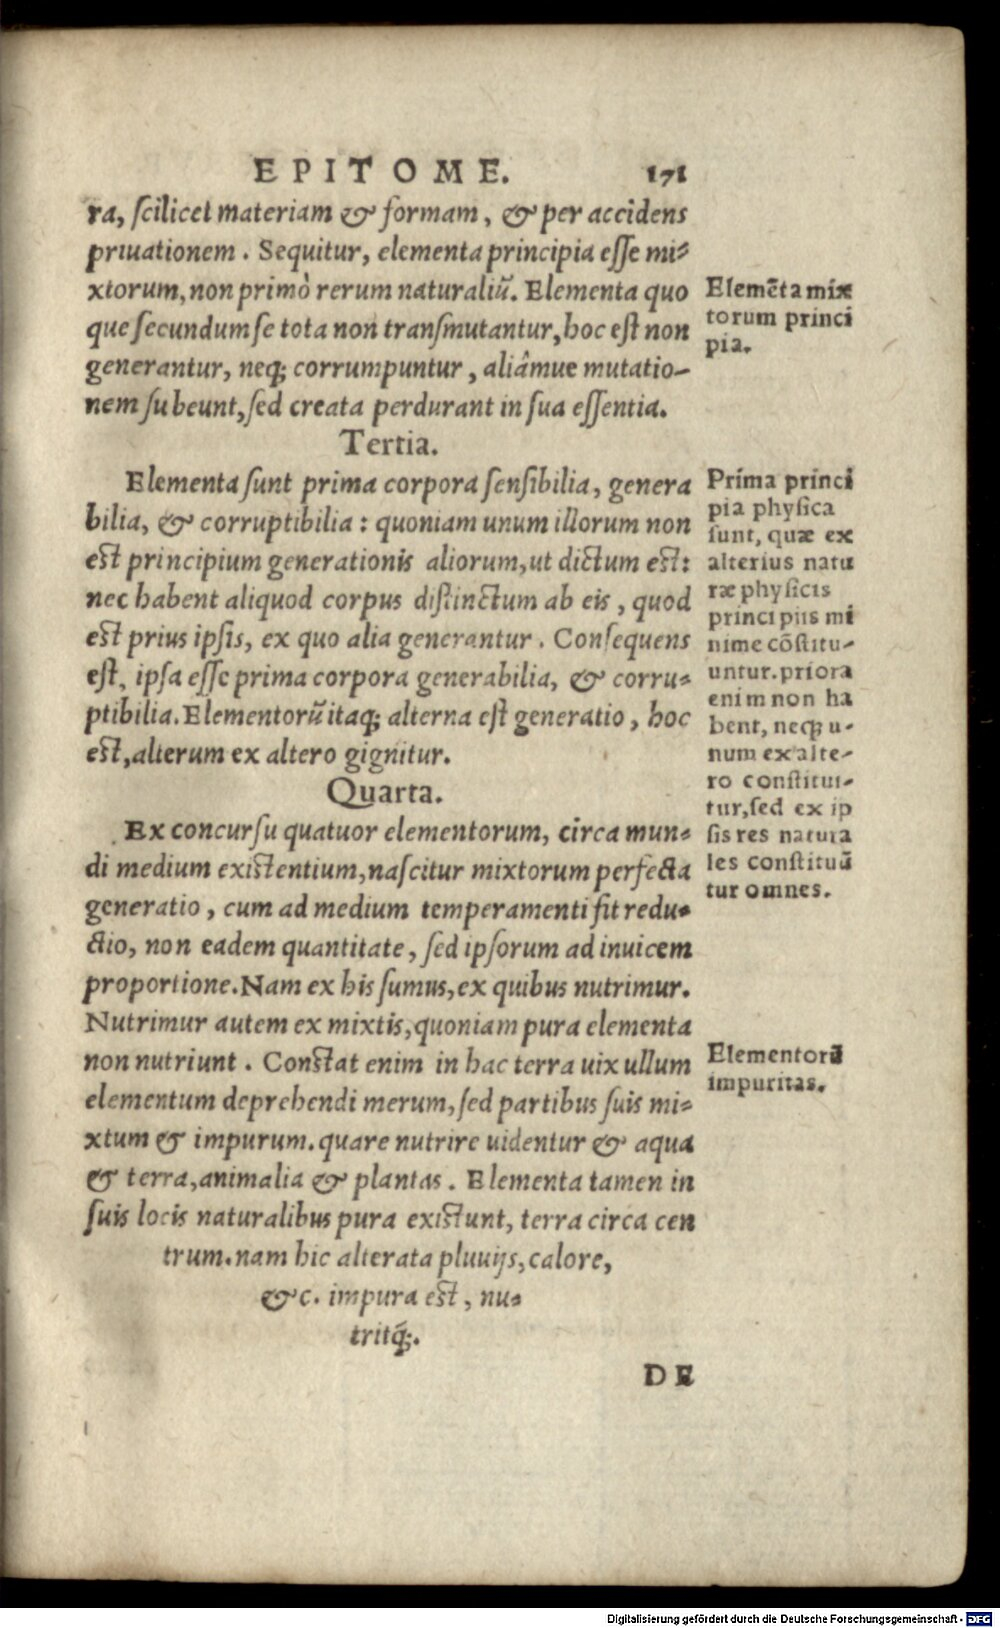 EPITOME. 171
ra, scilicet materiam & formam, & per accidens
priuationem. Sequitur, elementa principia esse mi-
xtorum, non primò rerum naturaliũ. Elementa quo
que secundum se tota non transmutantur, hoc est non
generantur, neq; corrumpuntur, aliâmue mutatio-
nem subeunt, sed creata perdurant in sua essentia.
Elemẽta mix
torum princi
pia.
Tertia.
Elementa sunt prima corpora sensibilia, genera
bilia, & corruptibilia: quoniam unum illorum non
est principium generationis aliorum, ut dictum est:
nec habent aliquod corpus distinctum ab eis, quod
est prius ipsis, ex quo alia generantur. Consequens
est, ipsa esse prima corpora generabilia, & corru-
ptibilia. Elementorũ itaq; alterna est generatio, hoc
est, alterum ex altero gignitur.
Prima princi
pia physica
sunt, quæ ex
alterius natu
ræ physicis
principiis mi
nime cõstitu-
untur. priora
enim non ha
bent, neq; u-
num ex alte-
ro constitui-
tur, sed ex ip
sis res natura
les constituũ
tur omnes.
Quarta.
Ex concursu quatuor elementorum, circa mun-
di medium existentium, nascitur mixtorum perfecta
generatio, cum ad medium temperamenti fit redu-
ctio, non eadem quantitate, sed ipsorum ad inuicem
proportione. Nam ex his sumus, ex quibus nutrimur.
Nutrimur autem ex mixtis, quoniam pura elementa
non nutriunt. Constat enim in hac terra uix ullum
elementum deprehendi merum, sed partibus suis mi-
xtum & impurum. quare nutrire uidentur & aqua
& terra, animalia & plantas. Elementa tamen in
suis locis naturalibus pura existunt, terra circa cen
trum. nam hic alterata pluuijs, calore,
&c. impura est, nu-
tritq́;.
Elementorũ
impuritas.
DE
Digitalisierung gefördert durch die Deutsche Forschungsgemeinschaft - DFG